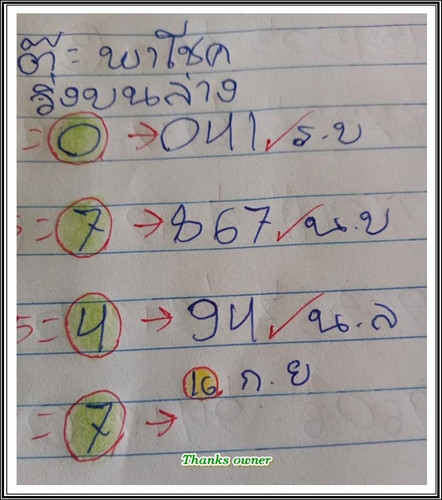 ตุ๊ะ พาโชค
วิ่งบนล่าง
= 0 → 041 ✓ ร.บ
= 7 → 867 ✓ น.บ
5 = 4 → 94 ✓ น.ล
16 ก.ย
= 7 →
Thanks owner